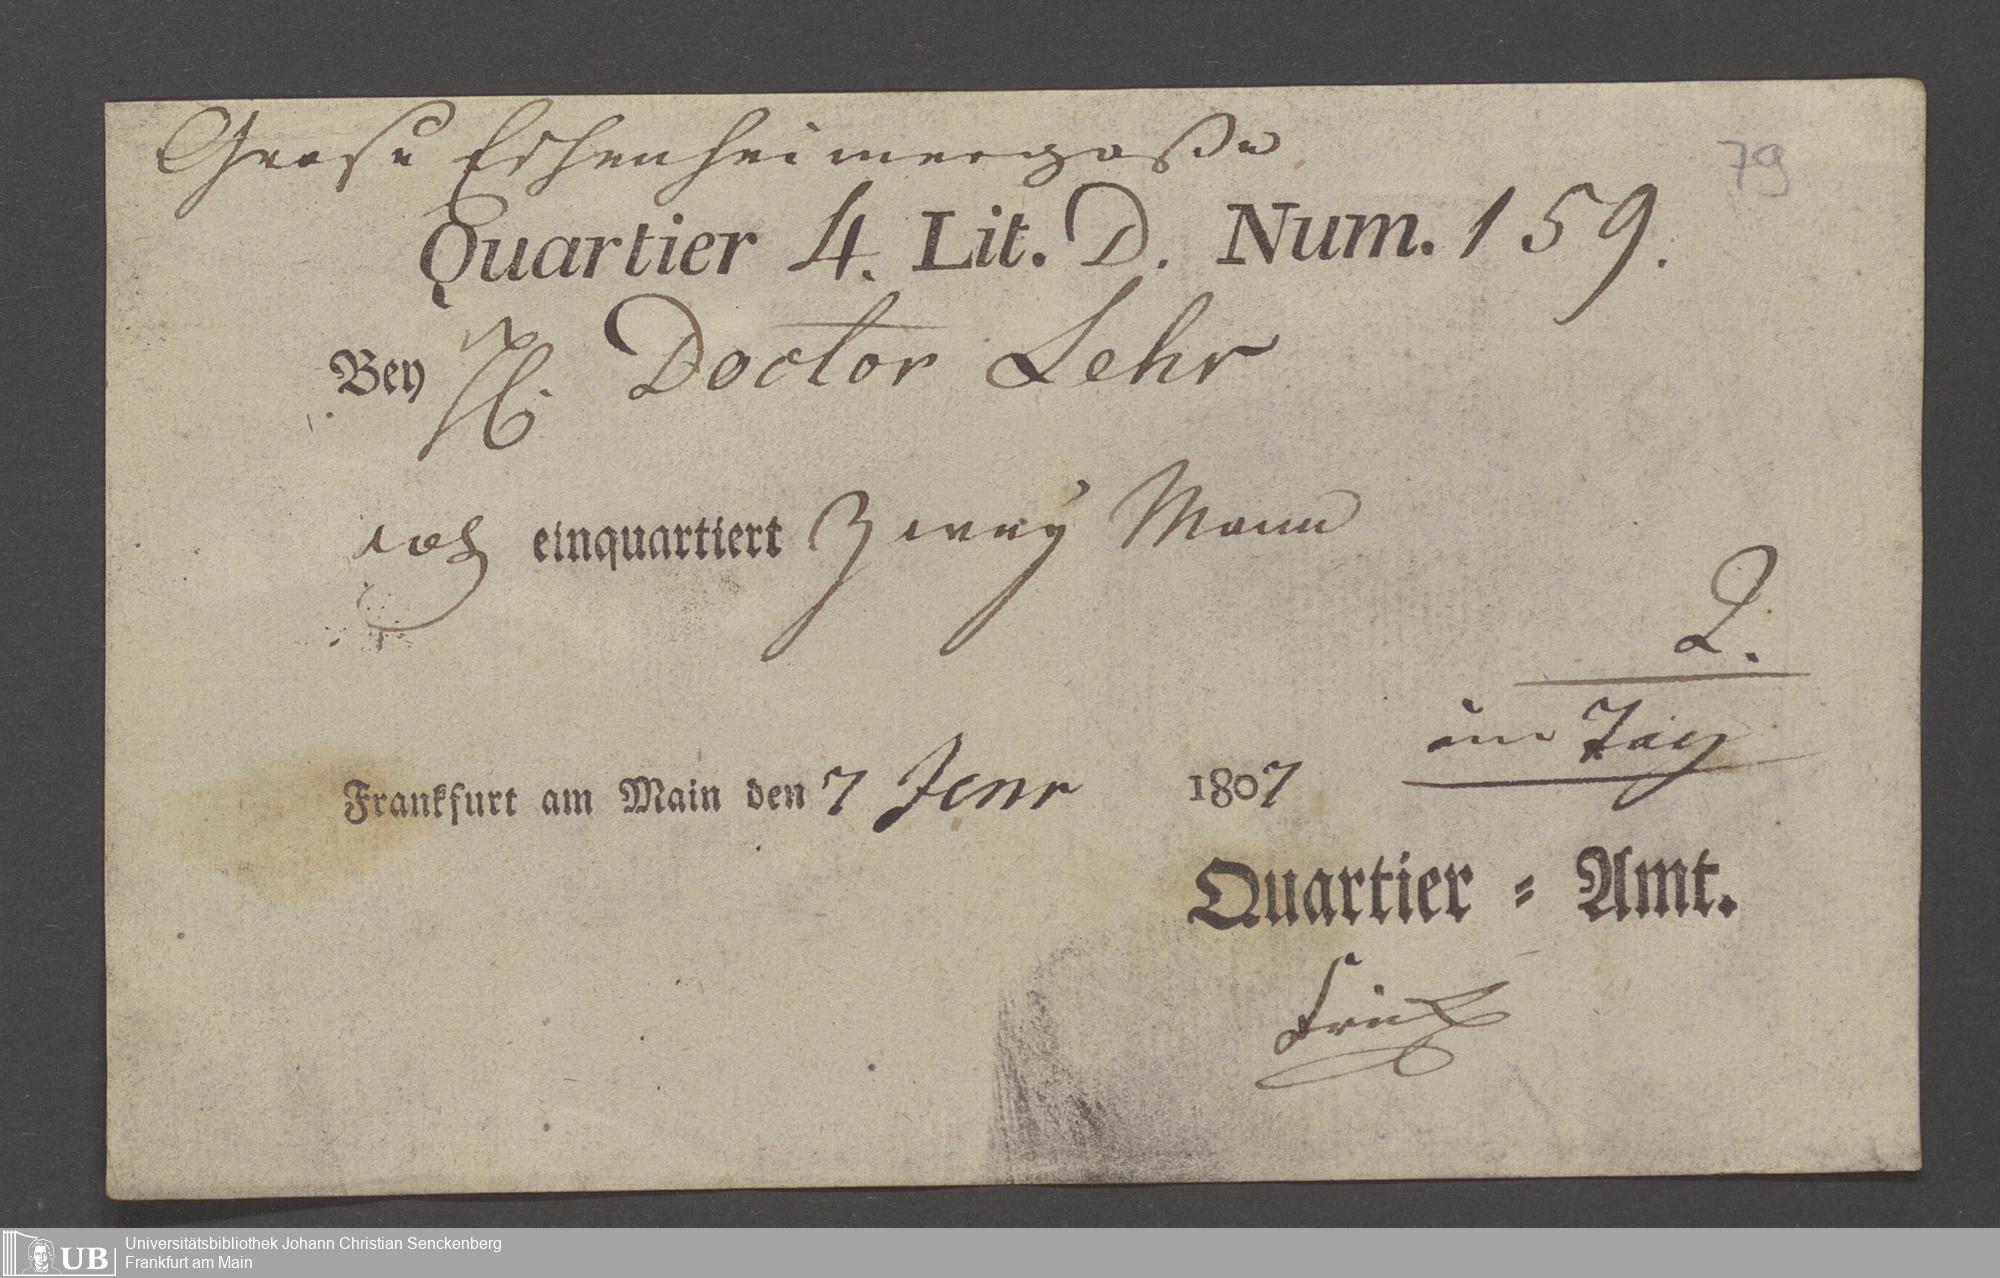 Grose Eschenheimergaße
79
Quartier 4. Lit. D. Num. 159.
Bey H. Doctor Lehr
einquartiert Zwey Mann
2.
ein Tag
Frankfurt am Main den 7 Jenr 1807
Quartier = Amt.
UB
Universitätsbibliothek Johann Christian Senckenberg
Frankfurt am Main